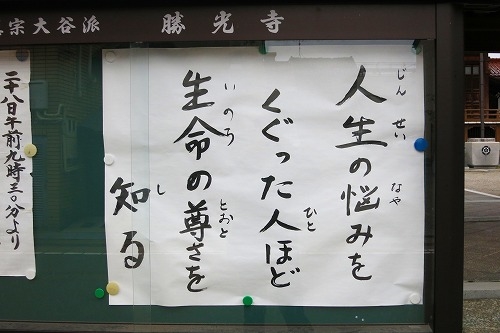 宗大谷派 勝光寺
人生の悩みを
じんせい なや
くぐった人ほど
ひと
生命の尊さを
いのち とおと
知る
し
二十八日午前九時三〇分より